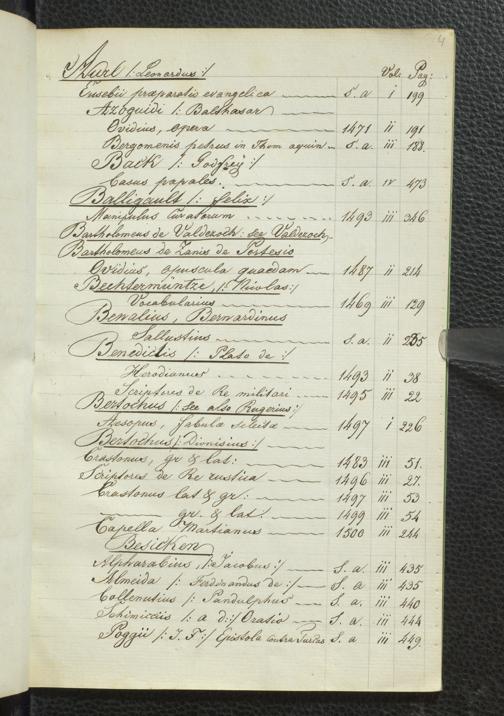 4
Vol: Pag:
Aurl /: Leonardus :/
Eusebii præparatio evangelica s. a i 199
Azoguidi /: Balthasar
Ovidius, opera 1471 ii 191
Bergomenis petrus in Thom aquin s. a. iii 188.
Back /: Godfrey :/
Casus papales. s. a. iv 473
Balligault /: felix :/
Manipulus Curatorum 1493 iii 346
Bartholomeus de Valdezoch: see Valdezoch
Bartholomeus de Zanis de Portesio
Ovidius, opuscula quaedam 1487 ii 214
Bechtermüntze, /: Nicolas :/
Vocabularius 1469 iii 129
Benalius, Bernardinus
Sallustius s. a. ii 255
Benedictis /: Plato de :/
Herodianus 1493 ii 38
Scriptores de Re militari 1495 iii 22
Bertochus /: see also Rugerius :/
Aesopus, fabulæ selectæ 1497 i 226
Bertochus /: Dionisius :/
Crastonus, gr & lat: 1483 iii 51.
Scriptores de Re rustica 1496 iii 27.
Crastonus lat & gr: 1497 iii 53
gr. & lat. 1499 iii 54
Capella Martianus 1500 iii 244
Besicken
Alpharabius, /: Jacobus :/ s. a. iii 435
Almeida /: Ferdinandus de :/ s. a iii 435
Collenutius /: Pandulphus s. a. iii 440
/: a d :/ Oratio s. a. iii 444
Poggii /: J. F :/ Epistola contra Turcas s. a iii 449.